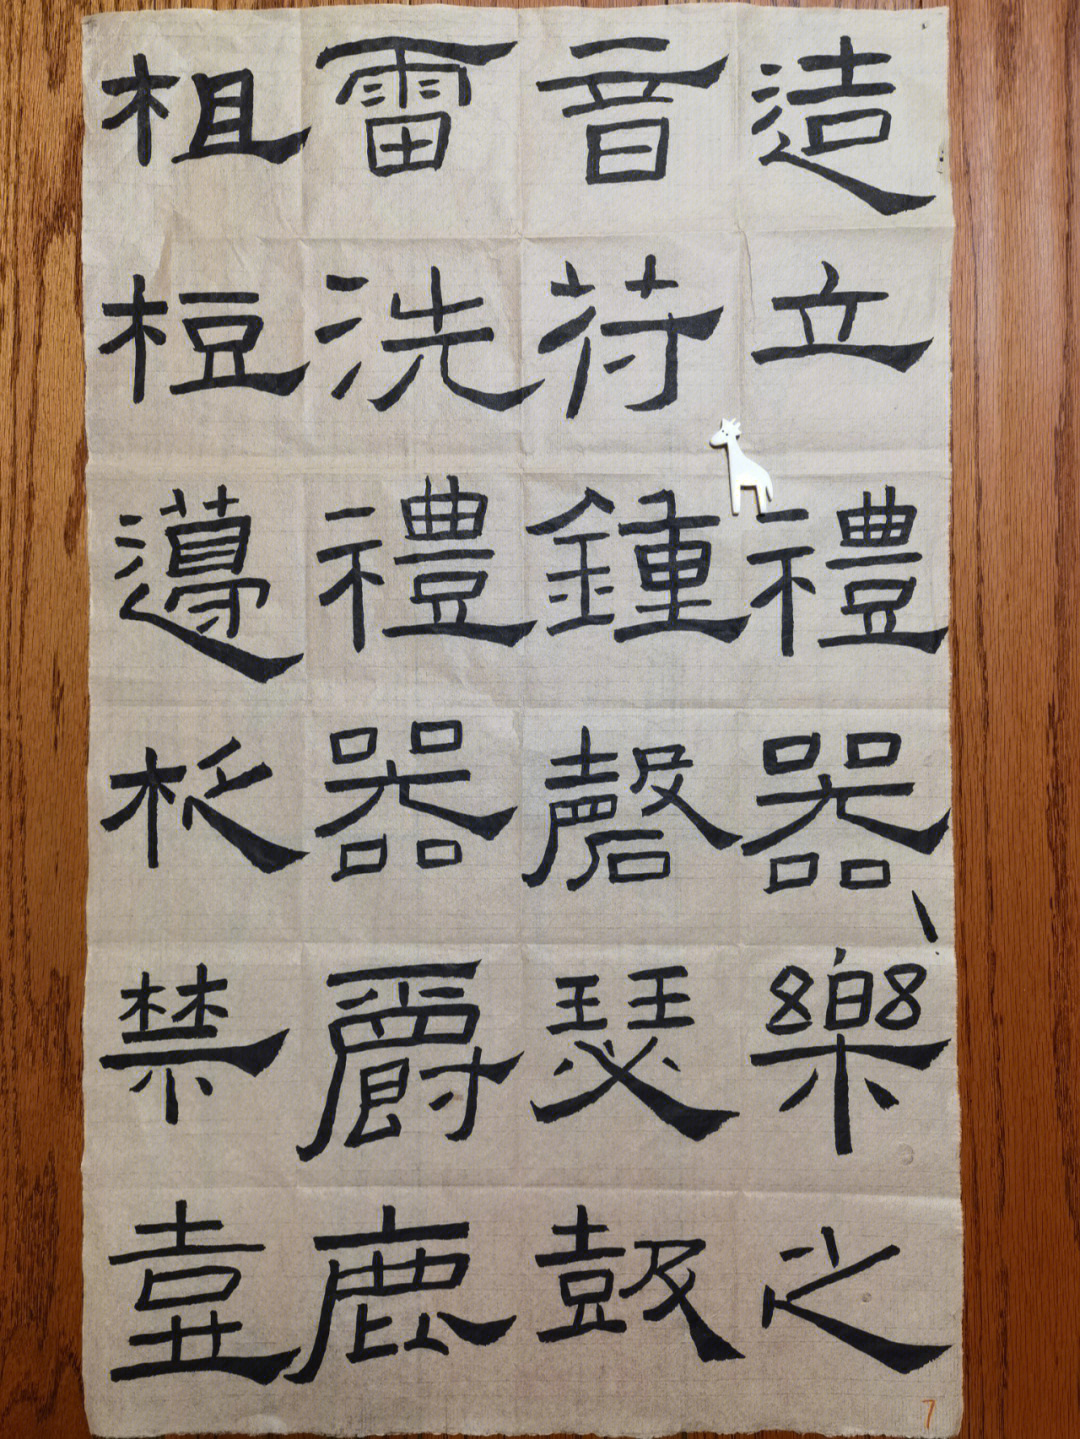 造立禮器、樂之
音符鍾磬瑟鼓
雷洗禮器爵鹿
柤梪籩柉禁壺
7